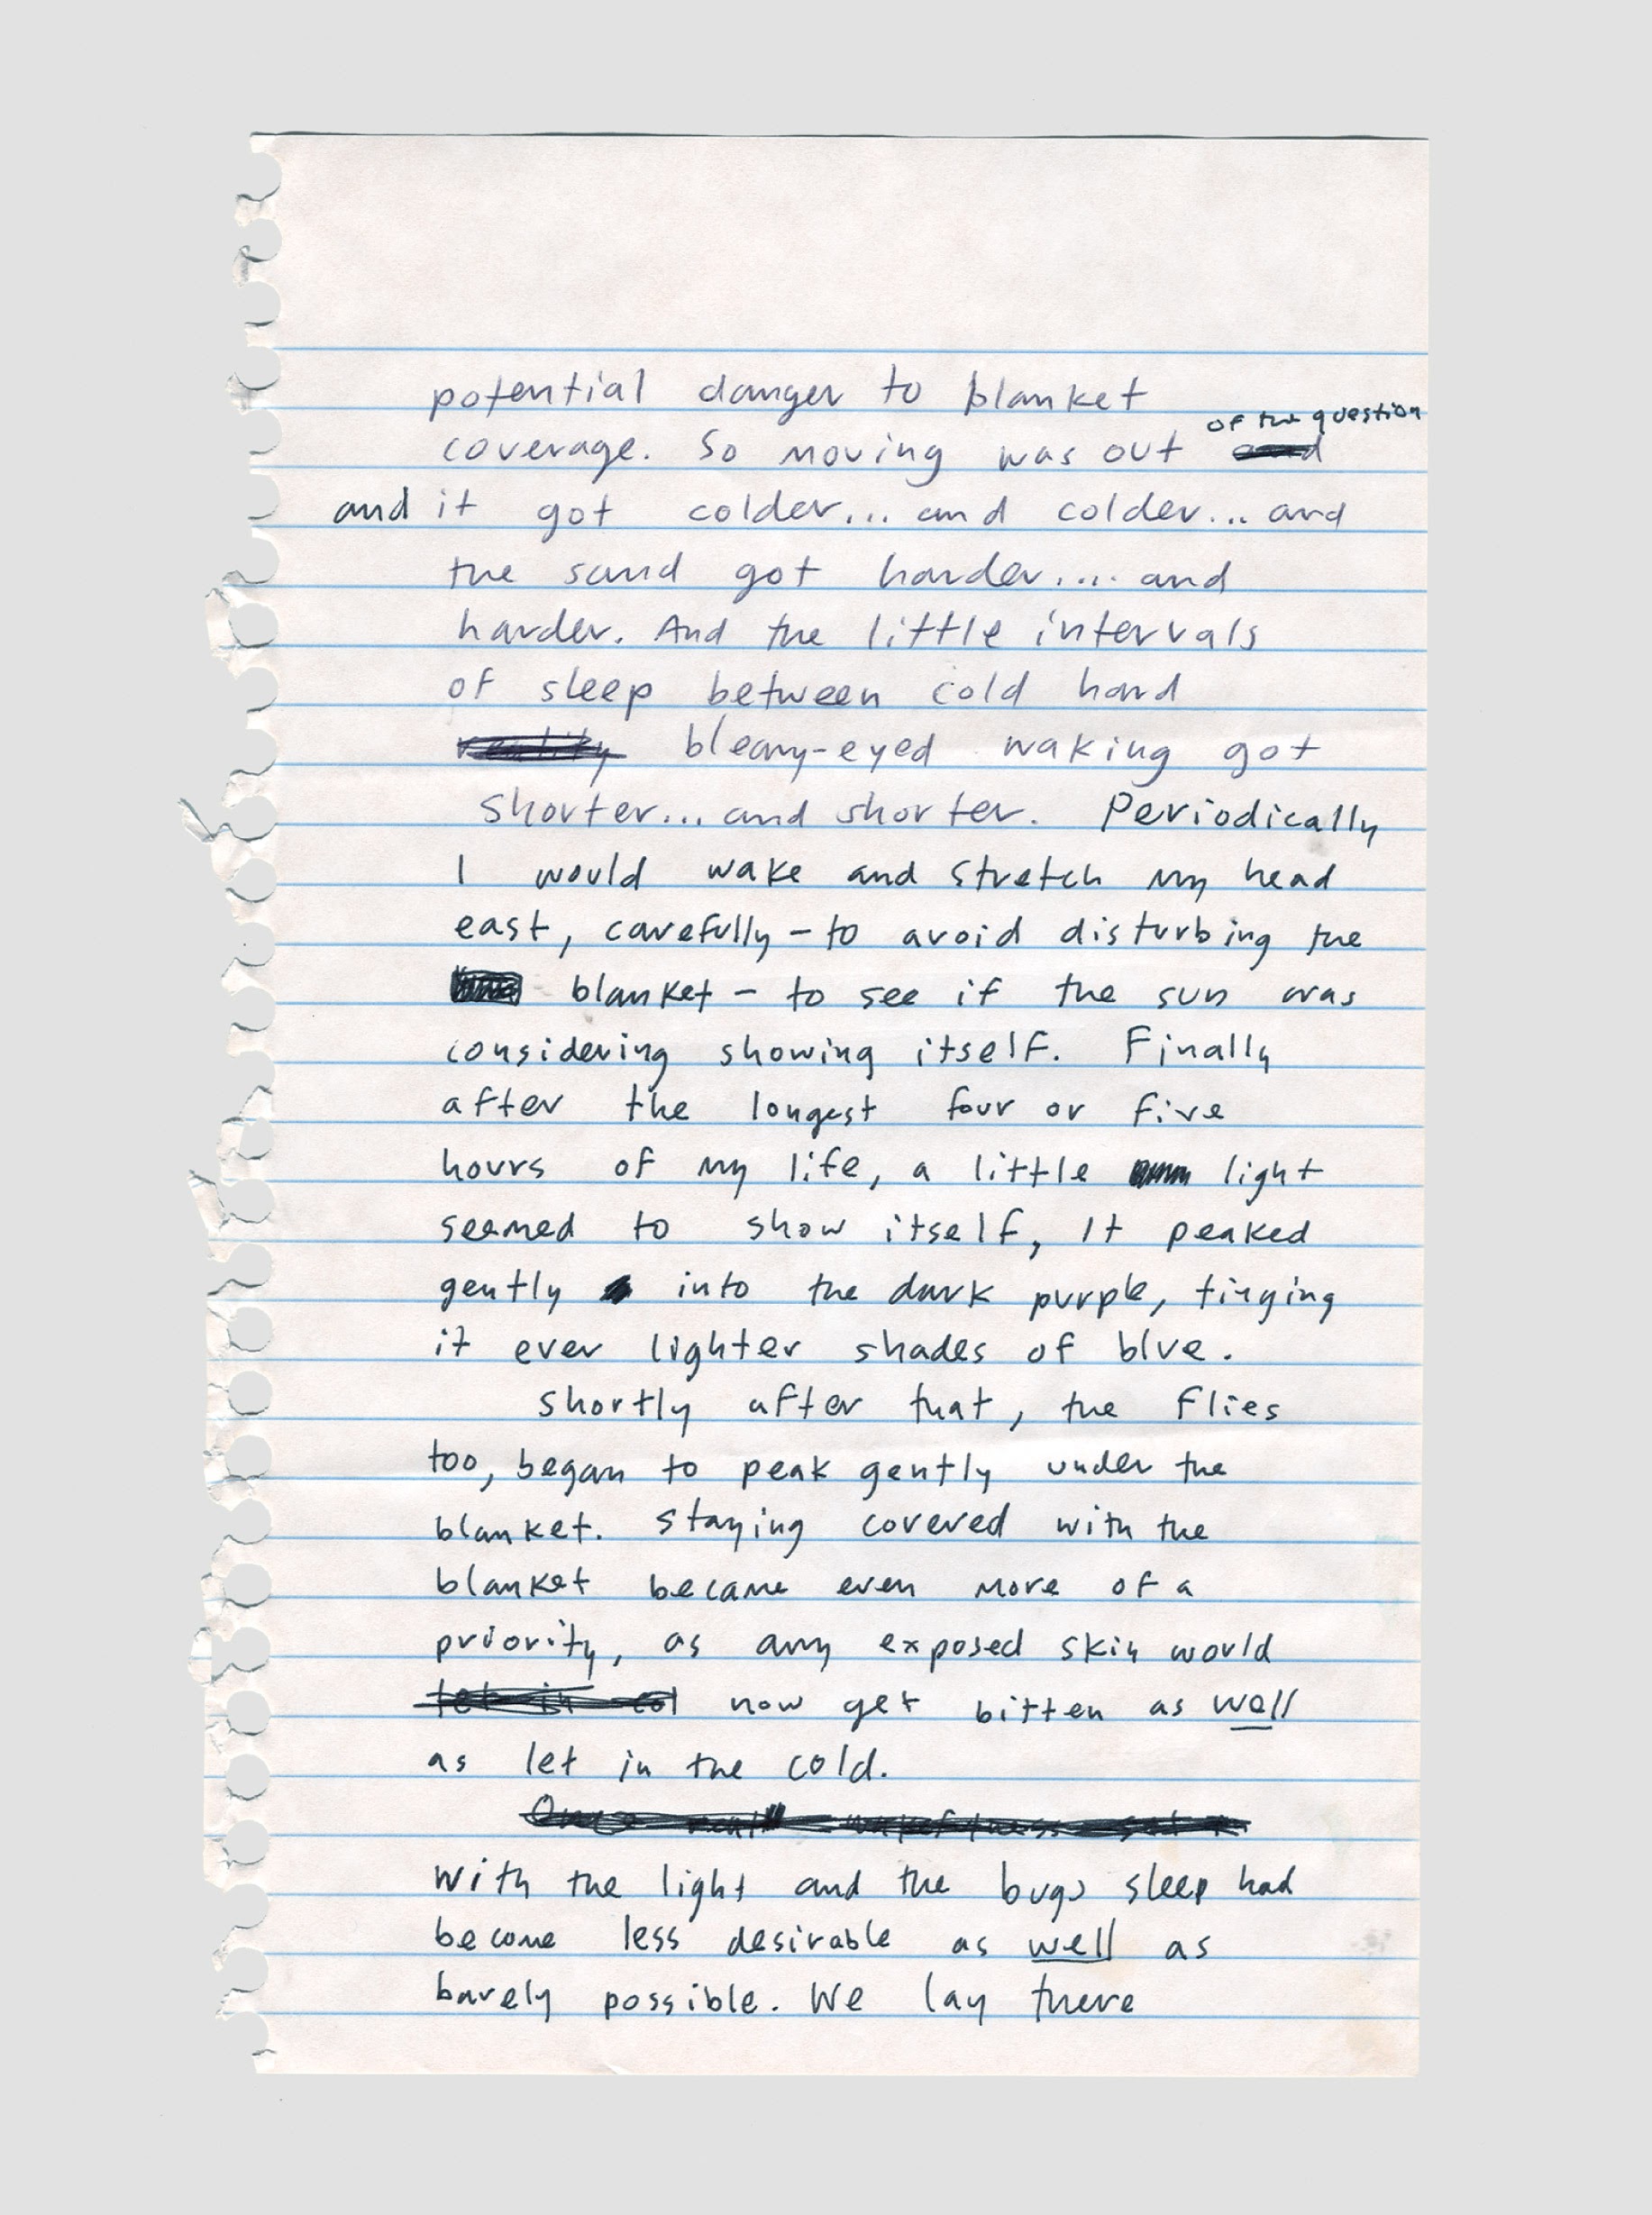 potential danger to blanket
of the question
coverage. So moving was out and
and it got colder... and colder... and
the sand got harder.... and
harder. And the little intervals
of sleep between cold hard
reality bleary-eyed waking got
shorter... and shorter. Periodically
I would wake and stretch my head
east, carefully - to avoid disturbing the
blanket - to see if the sun was
considering showing itself. Finally
after the longest four or five
hours of my life, a little light
seemed to show itself, It peaked
gently into the dark purple, tinging
it ever lighter shades of blue.
Shortly after that, the flies
too, began to peak gently under the
blanket. Staying covered with the
blanket became even more of a
priority, as any exposed skin would
let in col now get bitten as well
as let in the cold.
Once wakefulness set in
with the light and the bugs sleep had
become less desirable as well as
barely possible. We lay there